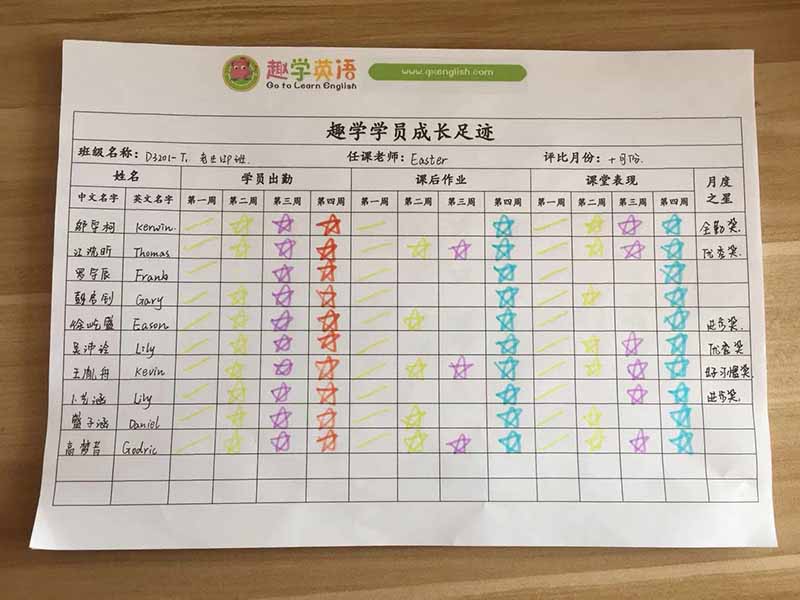 趣学英语
Go to Learn English
www.qxenglish.com
趣学学员成长足迹
班级名称: D3201-T. 任课老师: Easter 评比月份: 十月份.
姓名 学员出勤 课后作业 课堂表现 月度之星
中文名字 英文名字 第一周 第二周 第三周 第四周 第一周 第二周 第三周 第四周 第一周 第二周 第三周 第四周
Kerwin 全勤奖.
江瑞昕 Thomas 优秀奖.
罗宇辰 Frank
Gary
徐屹盛 Eason 进步奖.
Lily 优秀奖
王胤舟 Kevin 好习惯奖.
卜艺涵 Lily 进步奖.
盛子涵 Daniel
高梦昔 Godric